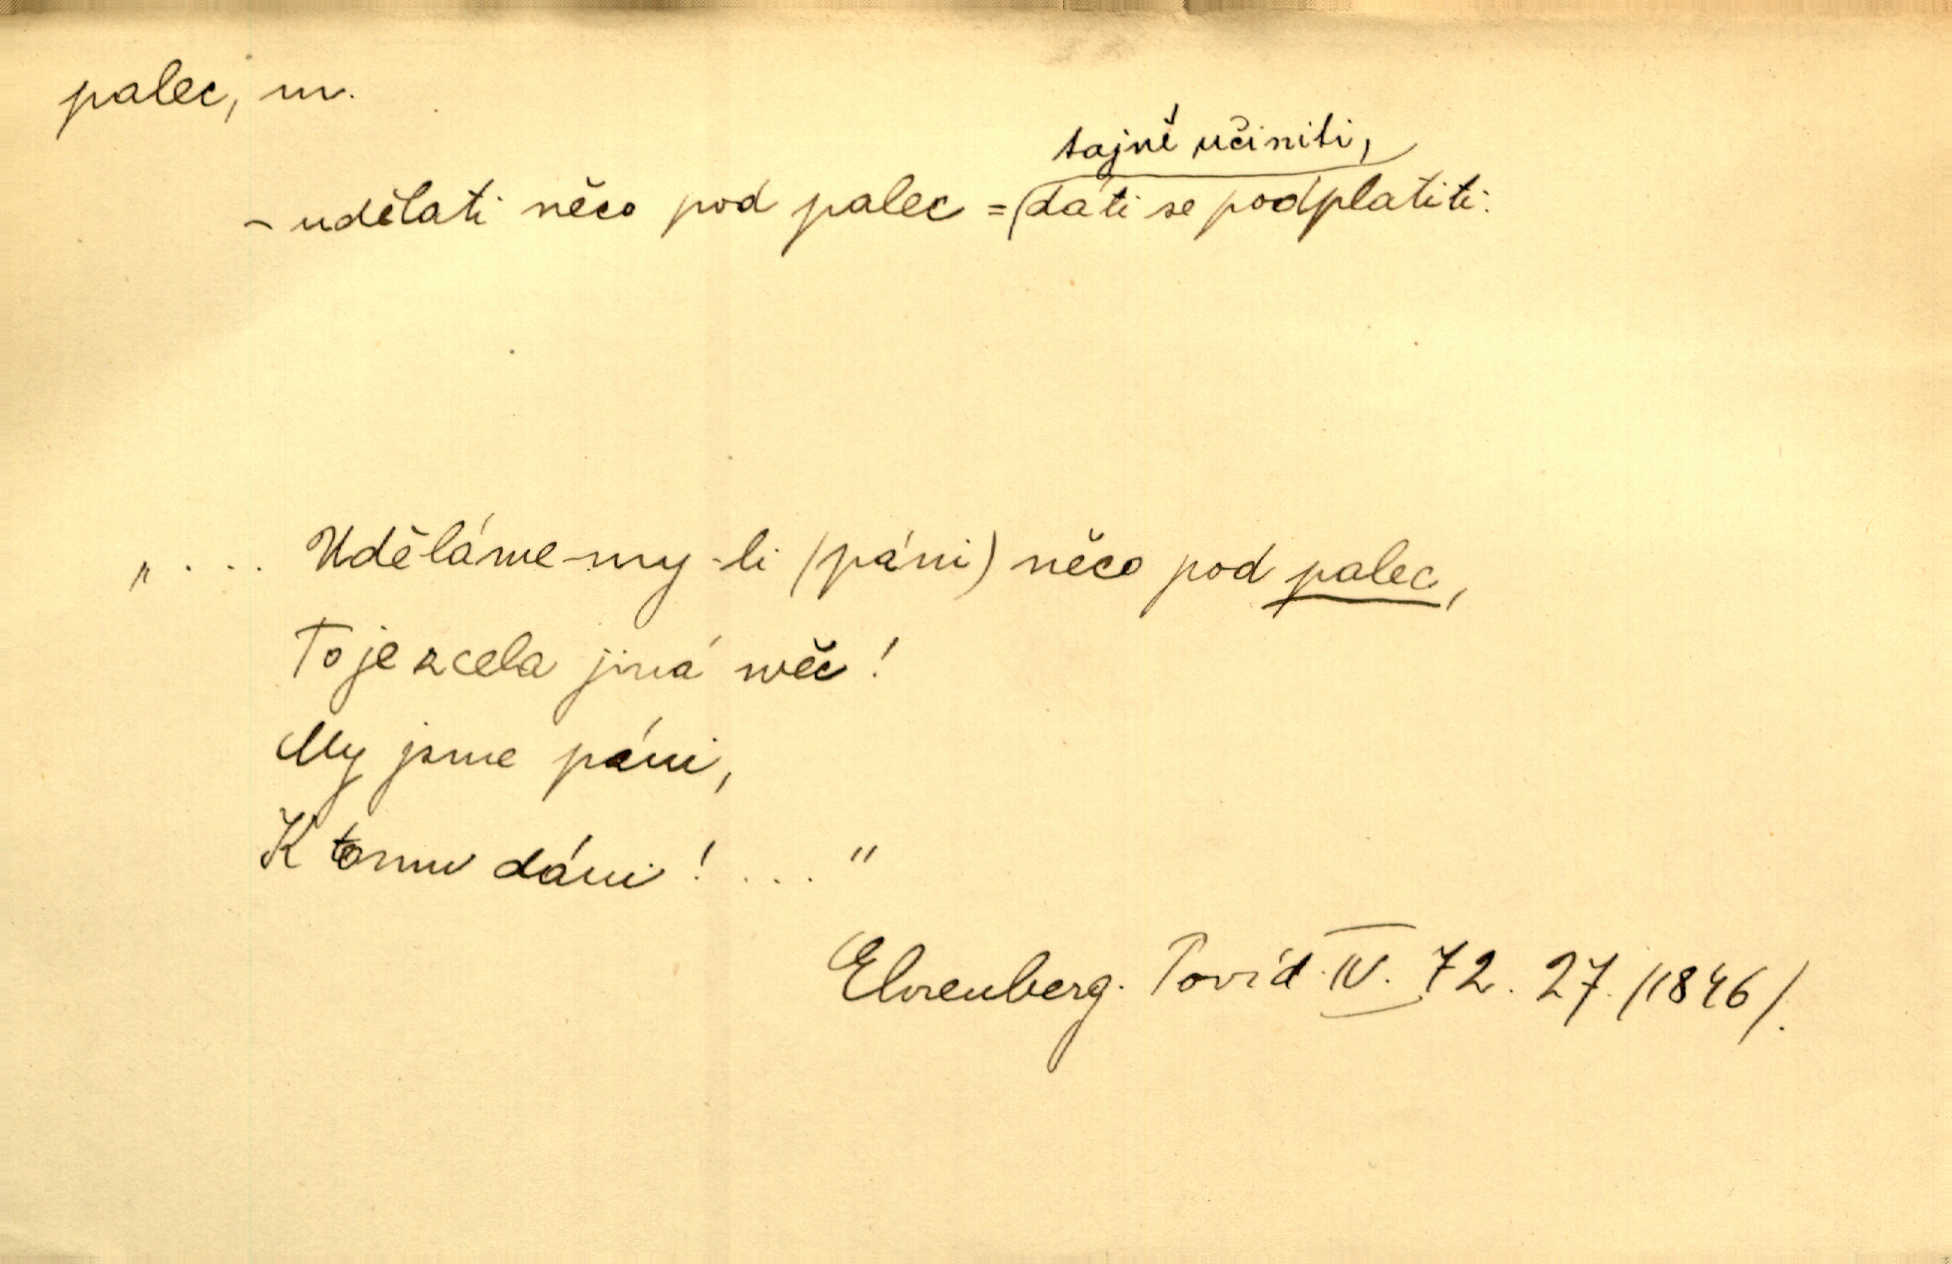 palec, m.
tajně učiniti,
- udělati něco pod palec = dati se podplatiti.
„ ... Uděláme-my-li (páni) něco pod palec,
To je zcela jiná věc!
My jsme páni,
K tomu dáni! ... "
Ehrenberg. Povíd. IV. 72. 27. /1846/.